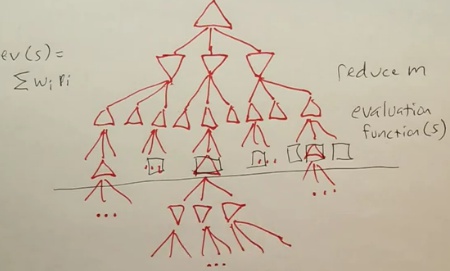 ev(s) =
Σ wᵢ pᵢ
reduce m
evaluation
function(s)
...
...
...
...
...